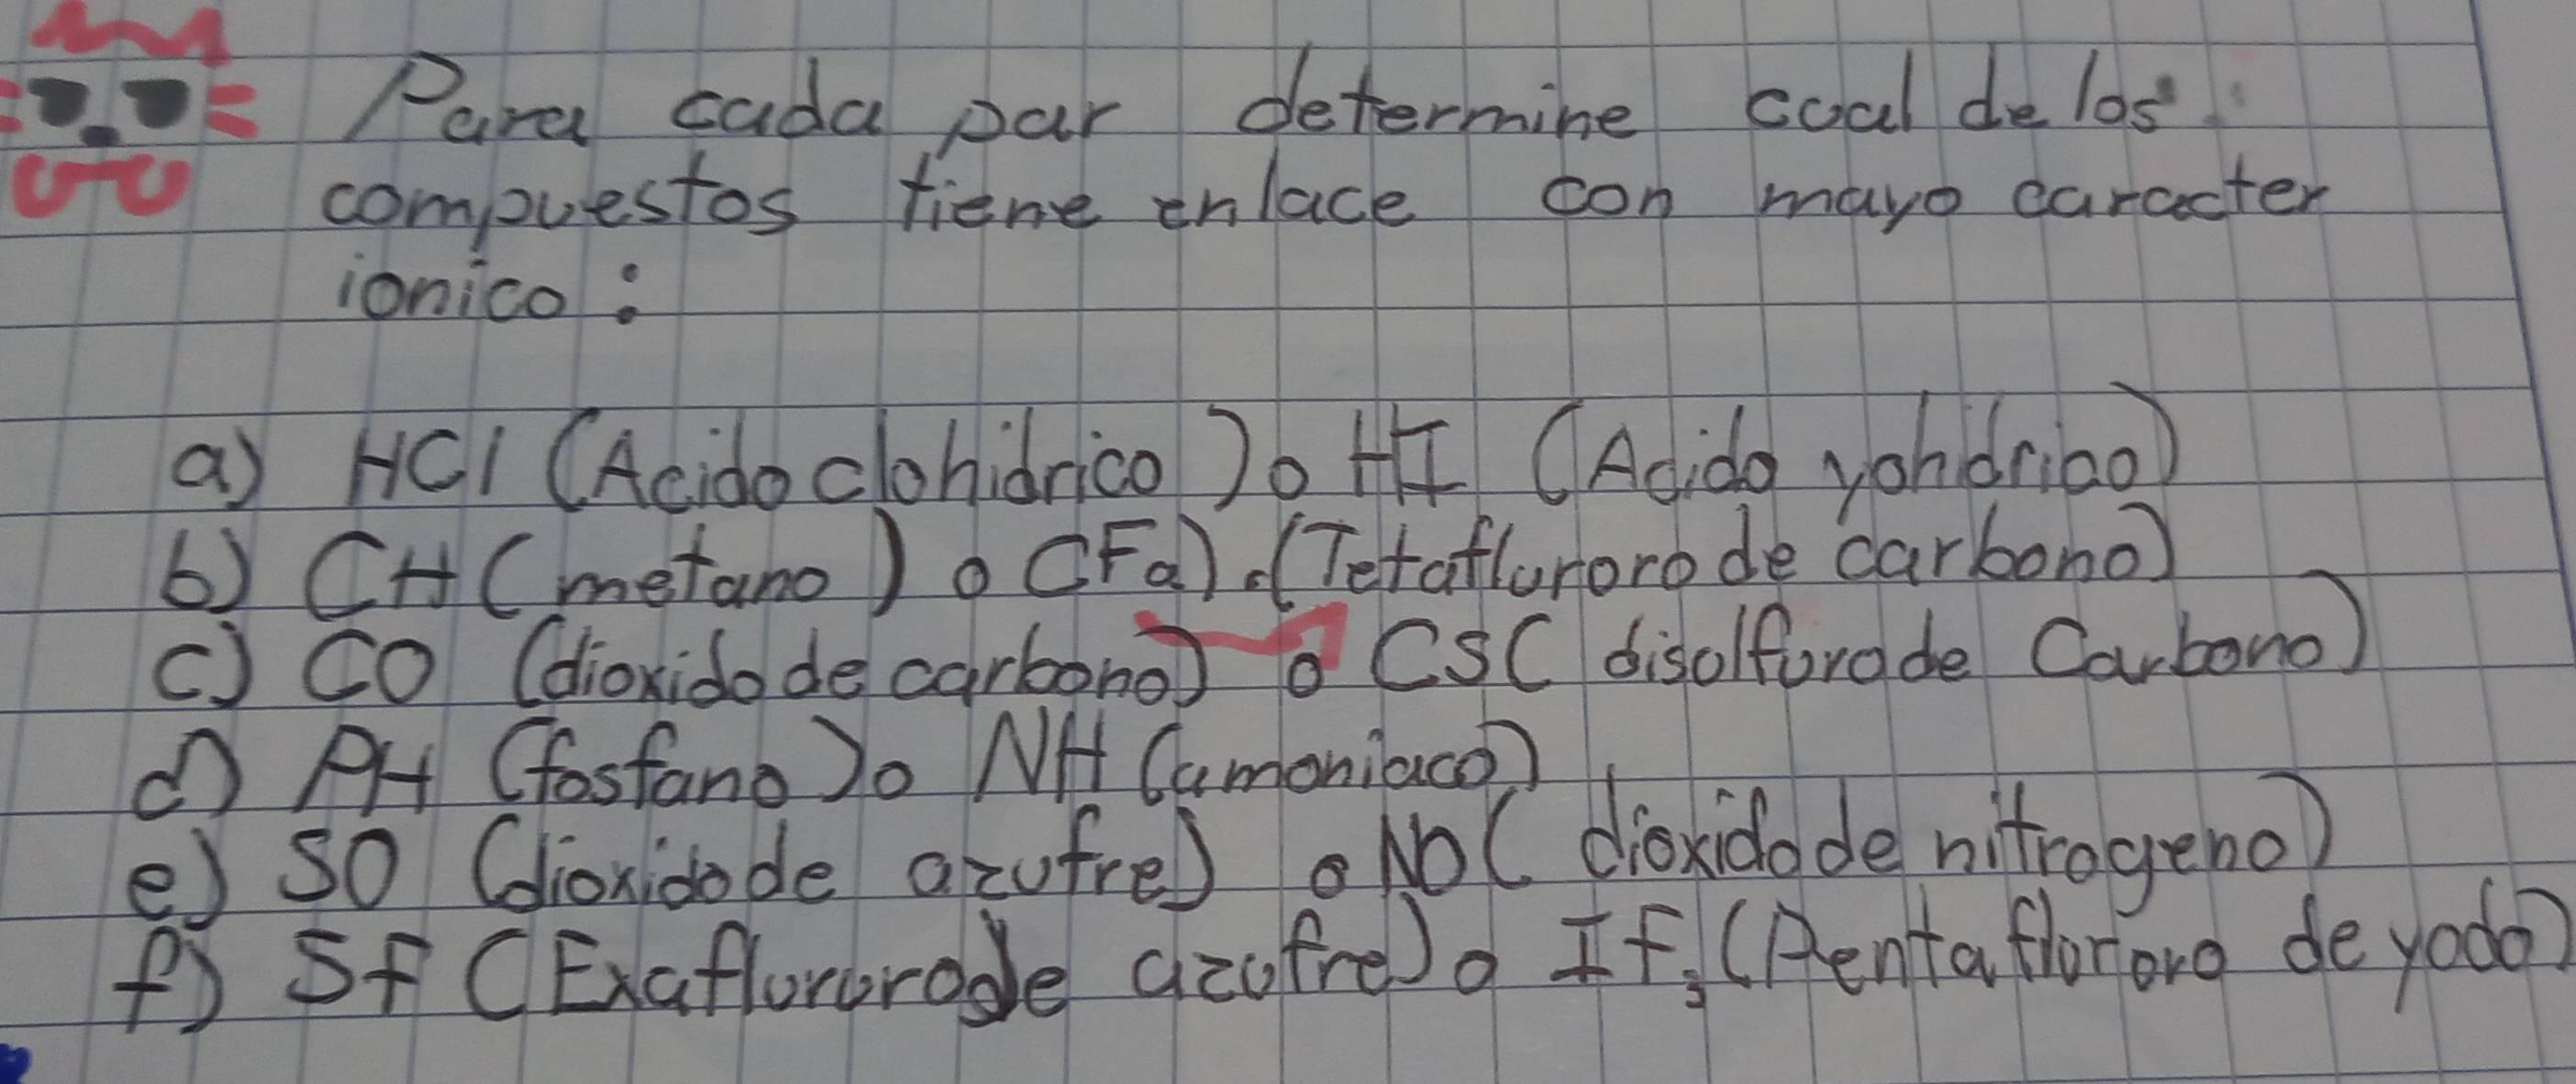 Para cada par determine cual de los
compuestos tiene enlace con mayo caracter
ionico:
a) HCl (Acido clohidrico) o HI (Acido yohdrico)
b) CH (metano) o CFa). (Tetaflurorode carbono)
c) CO (dioxido de carbono) o CS( disolfurode Carbono)
d) PH (fosfano) o NH (amoniaco)
e) SO (dioxido de azufre) o NO( dioxido de nitrogeno)
f) SF (Exaflururode azufre) o IF, (Pentaflororo de yodo)